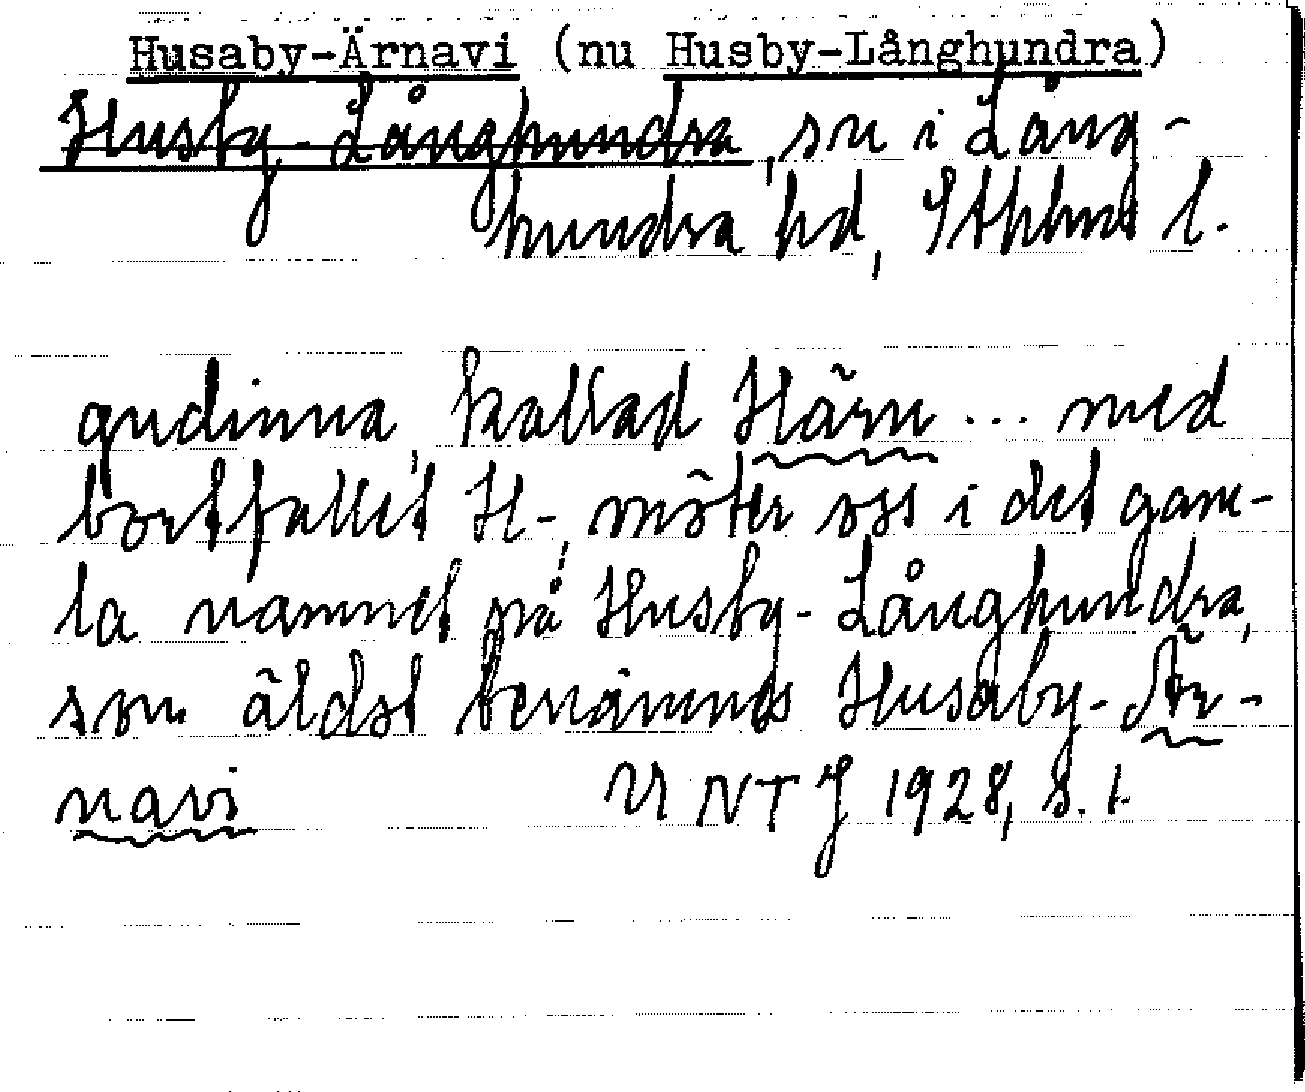 Husaby-Ärnavi (nu Husby-Långhundra)
Husby-Långhundra, sn i Lång-
hundra hd, Sthlms l.
gudinna, kallad Härn ... med
bortfallet H-, möter oss i det gam-
la namnet på Husby-Långhundra,
som äldst benämnes Husaby-Är-
navi UNTJ 1928, s. 1.